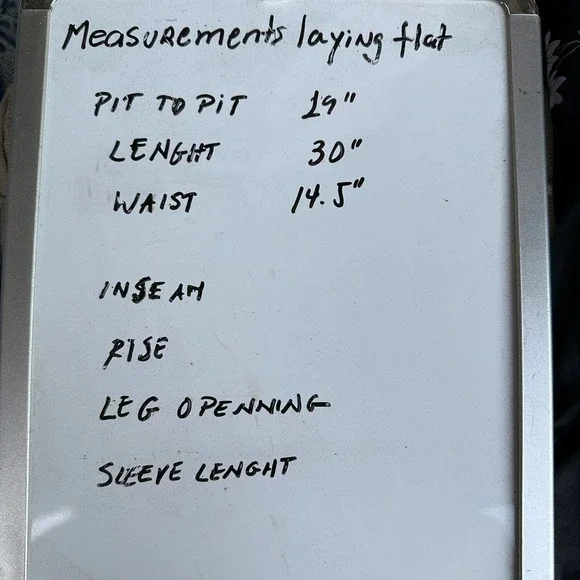 Measurements laying flat
PIT TO PIT 19"
LENGHT 30"
WAIST 14.5"
INSEAM
RISE
LEG OPENNING
SLEEVE LENGHT